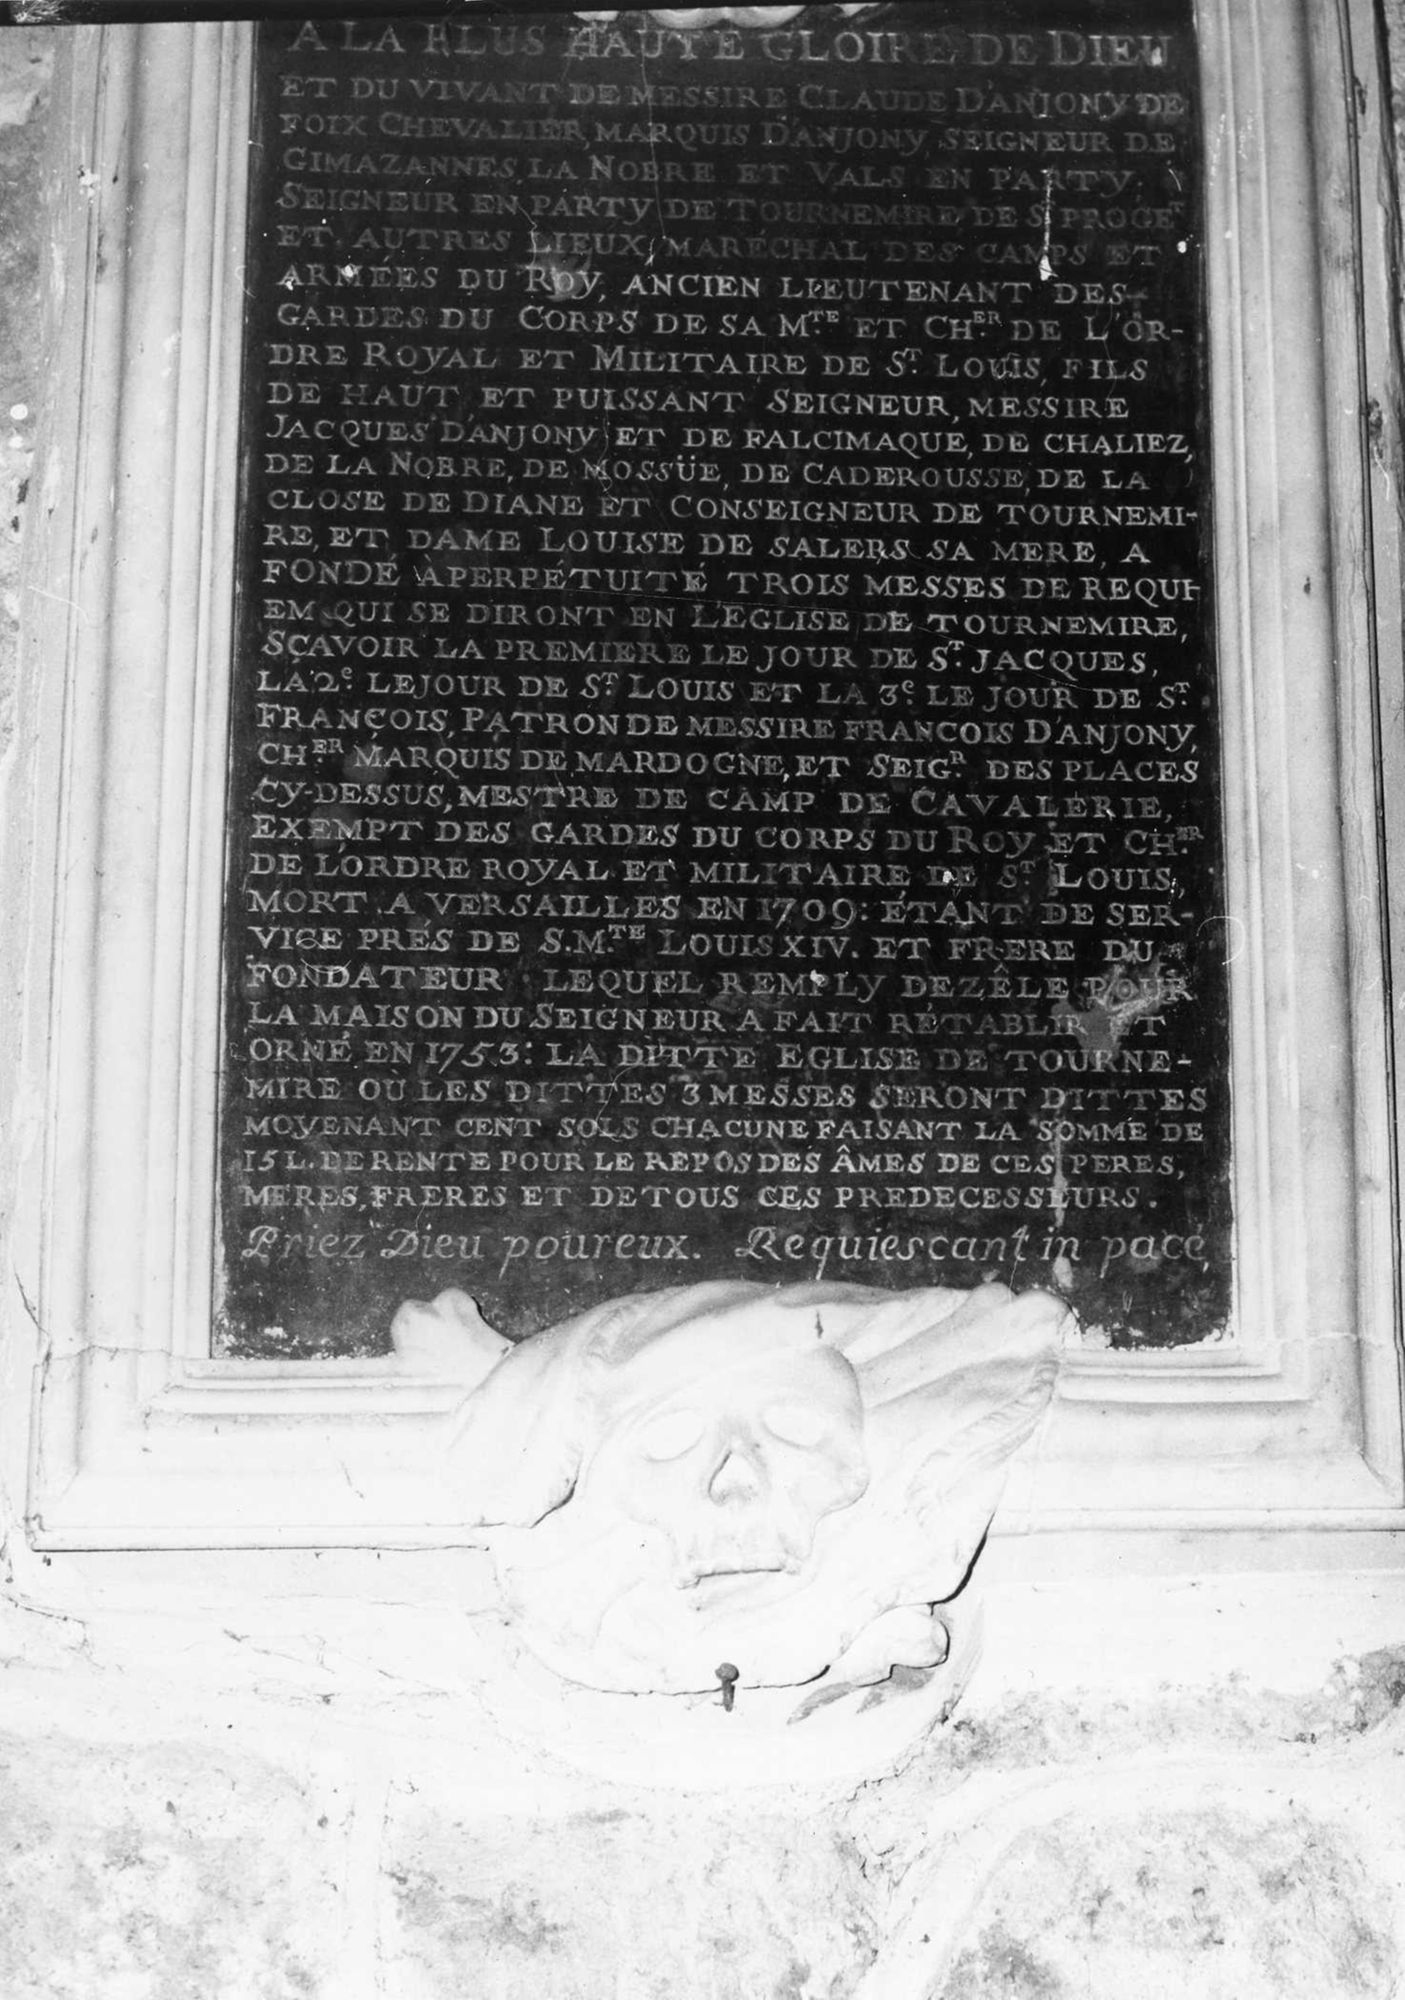 A LA PLUS HAUTE GLOIRE DE DIEU
ET DU VIVANT DE MESSIRE CLAUDE D'ANJONY DE
FOIX CHEVALIER, MARQUIS D'ANJONY, SEIGNEUR DE
GIMAZANNES, LA NOBRE ET VALS EN PARTY,
SEIGNEUR EN PARTY DE TOURNEMIRE, DE St PROGET
ET AUTRES LIEUX, MARÉCHAL DES CAMPS ET
ARMÉES DU ROY, ANCIEN LIEUTENANT DES
GARDES DU CORPS DE SA M.TE ET CH.ER DE L'OR-
DRE ROYAL ET MILITAIRE DE S.T LOUIS, FILS
DE HAUT ET PUISSANT SEIGNEUR, MESSIRE
JACQUES D'ANJONY ET DE FALCIMAQUE, DE CHALIEZ,
DE LA NOBRE, DE MOSSÜE, DE CADEROUSSE, DE LA
CLOSE DE DIANE ET CONSEIGNEUR DE TOURNEMI-
RE, ET DAME LOUISE DE SALERS SA MERE, A
FONDÉ À PERPÉTUITÉ TROIS MESSES DE REQUI-
EM QUI SE DIRONT EN L'EGLISE DE TOURNEMIRE,
SÇAVOIR LA PREMIERE LE JOUR DE S.T JACQUES,
LA 2.e LE JOUR DE S.T LOUIS ET LA 3.e LE JOUR DE S.T
FRANÇOIS, PATRON DE MESSIRE FRANCOIS D'ANJONY,
CH.ER MARQUIS DE MARDOGNE, ET SEIG.R DES PLACES
CY-DESSUS, MESTRE DE CAMP DE CAVALERIE,
EXEMPT DES GARDES DU CORPS DU ROY ET CH.ER
DE L'ORDRE ROYAL ET MILITAIRE DE S.T LOUIS,
MORT A VERSAILLES EN 1709: ÉTANT DE SER-
VICE PRÉS DE S.M.TE LOUIS XIV. ET FRERE DU
FONDATEUR: LEQUEL REMPLY DE ZÊLE POUR
LA MAISON DU SEIGNEUR A FAIT RÉTABLIR ET
ORNÉ EN 1753: LA DITTE EGLISE DE TOURNE-
MIRE OÙ LES DITTES 3 MESSES SERONT DITTES
MOYENANT CENT SOLS CHACUNE FAISANT LA SOMME DE
15 L. DE RENTE POUR LE REPOS DES ÂMES DE CES PERES,
MERES, FRERES ET DE TOUS CES PREDECESSEURS.
Priez Dieu pour eux. Requiescant in pace,